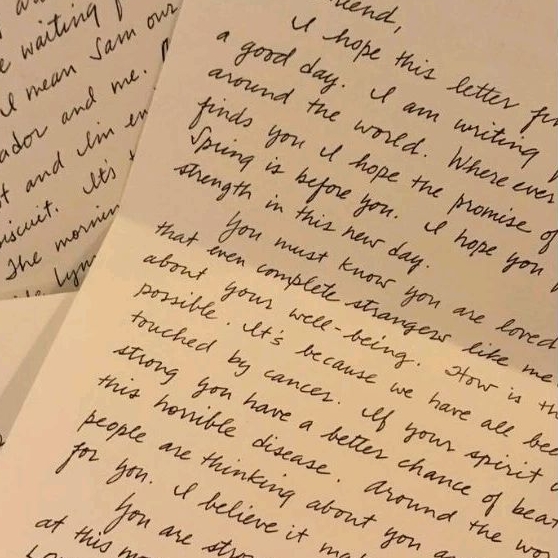 waiting
I mean Sam our
ador and me.
t and I'm en
iscuit. It's
The mornin
Lym
riend,
I hope this letter fin
a good day. I am writing
around the world. Where ever
finds you I hope the promise of
Spring is before you. I hope you
strength in this new day.
You must know you are loved
that even complete strangers like me
about your well-being. How is th
possible. It's because we have all bee
touched by cancer. If your spirit
strong you have a better chance of beat
this horrible disease. Around the wo
people are thinking about you a
for you. I believe it ma
You are stro
at this mo